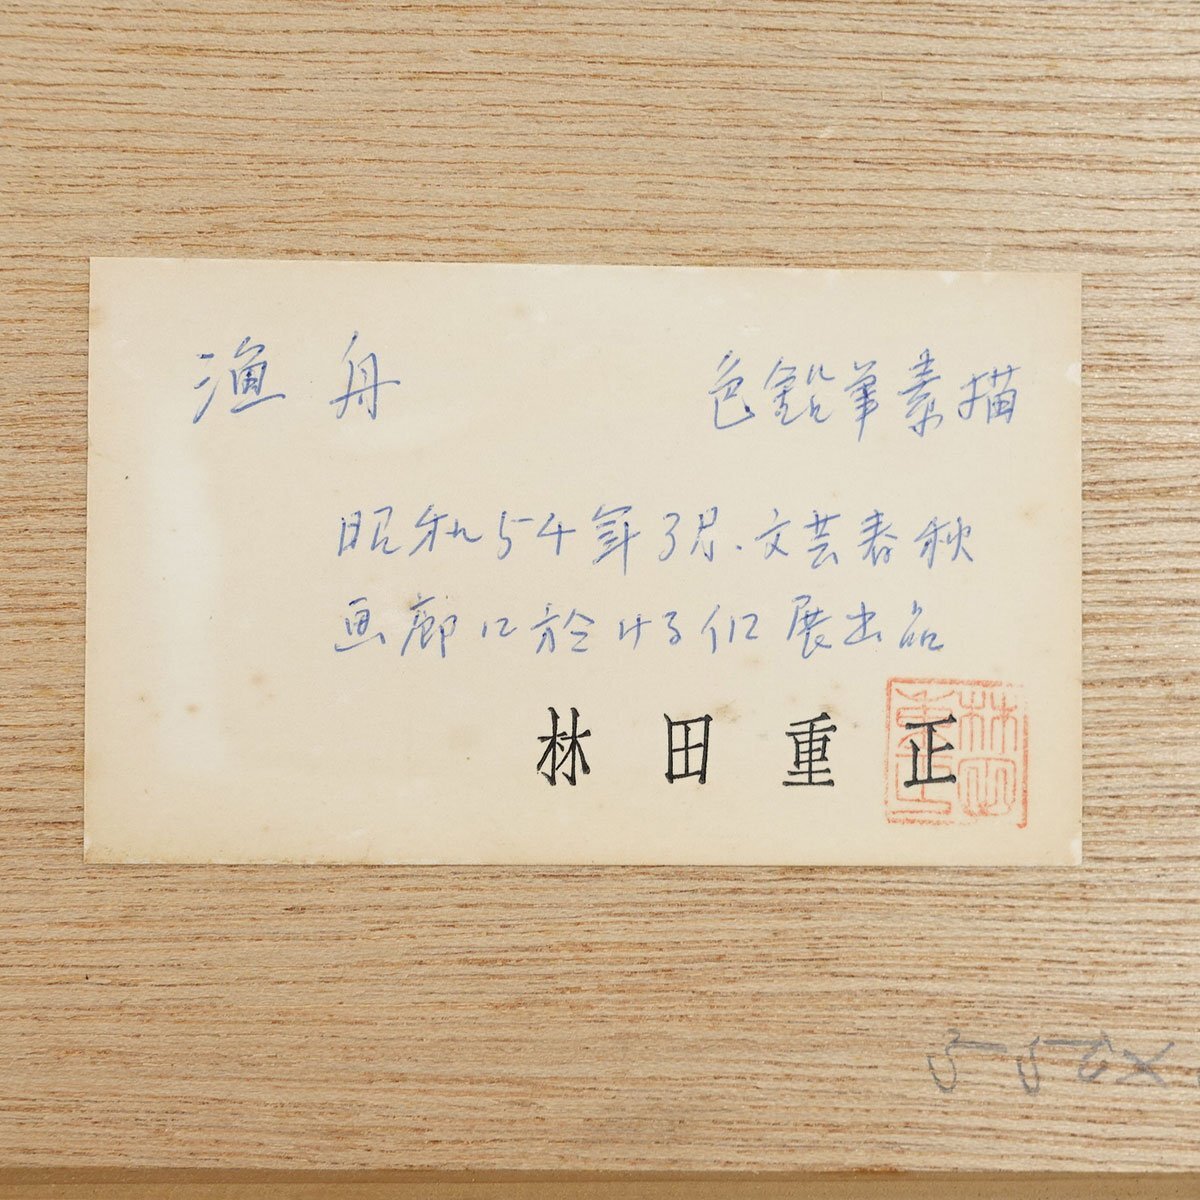 漁舟 色鉛筆素描
昭和54年3月、文芸春秋
画廊に於ける個展出品
林田重正
林田重正